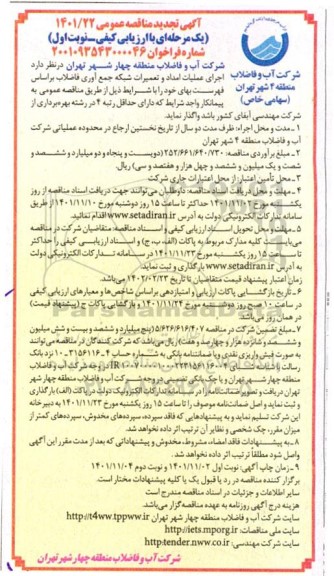 آگهی تجدید مناقصه عمومی ۱۴۰۱/۲۲
(یک مرحله‌ای با ارزیابی کیفی - نوبت اول)
شماره فراخوان ۲۰۰۱۰۹۳۵۴۳۰۰۰۰۴۶
شرکت آب و فاضلاب
منطقه ۴ شهر تهران
(سهامی خاص)
شرکت آب و فاضلاب منطقه چهار شهر تهران در نظر دارد
اجرای عملیات امداد و تعمیرات شبکه جمع آوری فاضلاب براساس
فهرست بهای خود را با شرایط ذیل از طریق مناقصه عمومی به
پیمانکار واجد شرایط که دارای حداقل رتبه ۴ در رشته بهره‌برداری از
شرکت مهندسی آبفای کشور باشد واگذار نماید.
۱- مدت و محل اجراء: ظرف مدت دو سال از تاریخ نخستین ارجاع در محدوده عملیاتی شرکت
آب و فاضلاب منطقه ۴ شهر تهران
۲- مبلغ برآوردی مناقصه: ۲۵۲/۶۶۱/۶۴۰/۷۳۰ (دویست و پنجاه و دو میلیارد و ششصد و
شصت و یک میلیون و ششصد و چهل هزار و هفتصد و سی) ریال.
۳- محل تأمین اعتبار: از محل اعتبارات جاری شرکت
۴- مهلت و محل دریافت اسناد مناقصه: داوطلبان می‌توانند جهت دریافت اسناد مناقصه از روز
یکشنبه مورخ ۱۴۰۱/۱۱/۰۲ حداکثر تا ساعت ۱۵ روز دوشنبه مورخ ۱۴۰۱/۱۱/۱۰ از طریق
سامانه تدارکات الکترونیکی دولت به آدرس www.setadiran.ir اقدام نمائید.
۵- مهلت و محل تحویل اسناد ارزیابی کیفی و اسناد مناقصه: متقاضیان شرکت در مناقصه
می‌بایست کلیه مدارک مربوط به پاکات (الف، ب، ج) و اسناد ارزیابی کیفی را حداکثر
تا ساعت ۱۵ روز یکشنبه مورخ ۱۴۰۱/۱۱/۲۳ در سامانه تدارکات الکترونیکی دولت
به آدرس www.setadiran.ir بارگذاری و ثبت نماید.
زمان اعتبار پیشنهاد قیمت متقاضیان تا تاریخ ۱۴۰۲/۰۲/۲۳ می‌باشد.
۶- تاریخ بازگشائی پاکات ارزیابی و امتیازدهی براساس شاخص‌ها و معیارهای ارزیابی کیفی
در ساعت ۱۰ صبح روز دوشنبه مورخ ۱۴۰۱/۱۱/۲۴ و بازگشائی پاکات ج (پیشنهاد قیمت)
در همان روز می‌باشد.
۷- مبلغ تضمین شرکت در مناقصه ۵/۶۲۶/۶۱۶/۴۰۷ (پنج میلیارد و ششصد و بیست و شش میلیون
و ششصد و شانزده هزار و چهارصد و هفت) ریال می‌باشد که شرکت کنندگان در مناقصه می‌توانند
به صورت فیش واریزی نقدی و یا ضمانتنامه بانکی به شماره حساب
در وجه شرکت آب و فاضلاب
منطقه چهار شهر تهران و یا چک بانکی تضمینی در وجه شرکت آب و فاضلاب منطقه چهار شهر
تهران دریافت و تصویر ضمانت‌نامه را در سامانه تدارکات الکترونیک دولت در پاکت (الف) بارگذاری
و ثبت نماید و اصل ضمانت‌نامه موصوف را تا ساعت ۱۵ روز یکشنبه مورخ ۱۴۰۱/۱۱/۲۳ به دبیرخانه
این شرکت تسلیم نماید و به پیشنهادهایی که فاقد سپرده، سپرده‌های مخدوش، سپرده‌های کمتر از
میزان مقرر، چک شخصی و نظایر آن ترتیب اثر داده نخواهد شد.
۸- به پیشنهادات فاقد امضاء، مشروط، مخدوش و پیشنهاداتی که بعد از مدت مقرر این آگهی
واصل شود مطلقا ترتیب اثر داده نخواهد شد.
۹- زمان چاپ آگهی: نوبت اول ۱۴۰۱/۱۱/۰۲ و نوبت دوم ۱۴۰۱/۱۱/۰۴
برگزار کننده مناقصه در رد یا قبول یک یا کلیه پیشنهادات مختار است.
سایر اطلاعات و جزئیات در اسناد مناقصه مندرج است
هزینه درج آگهی روزنامه به عهده مناقصه گزار می‌باشد.
سایت شرکت آب و فاضلاب منطقه چهار شهر تهران http://t4ww.tpww.ir
سایت ملی مناقصات: http://iets.mporg.ir
سایت شرکت مهندسی: http:tender.nww.co.ir
شرکت آب و فاضلاب منطقه چهار شهر تهران